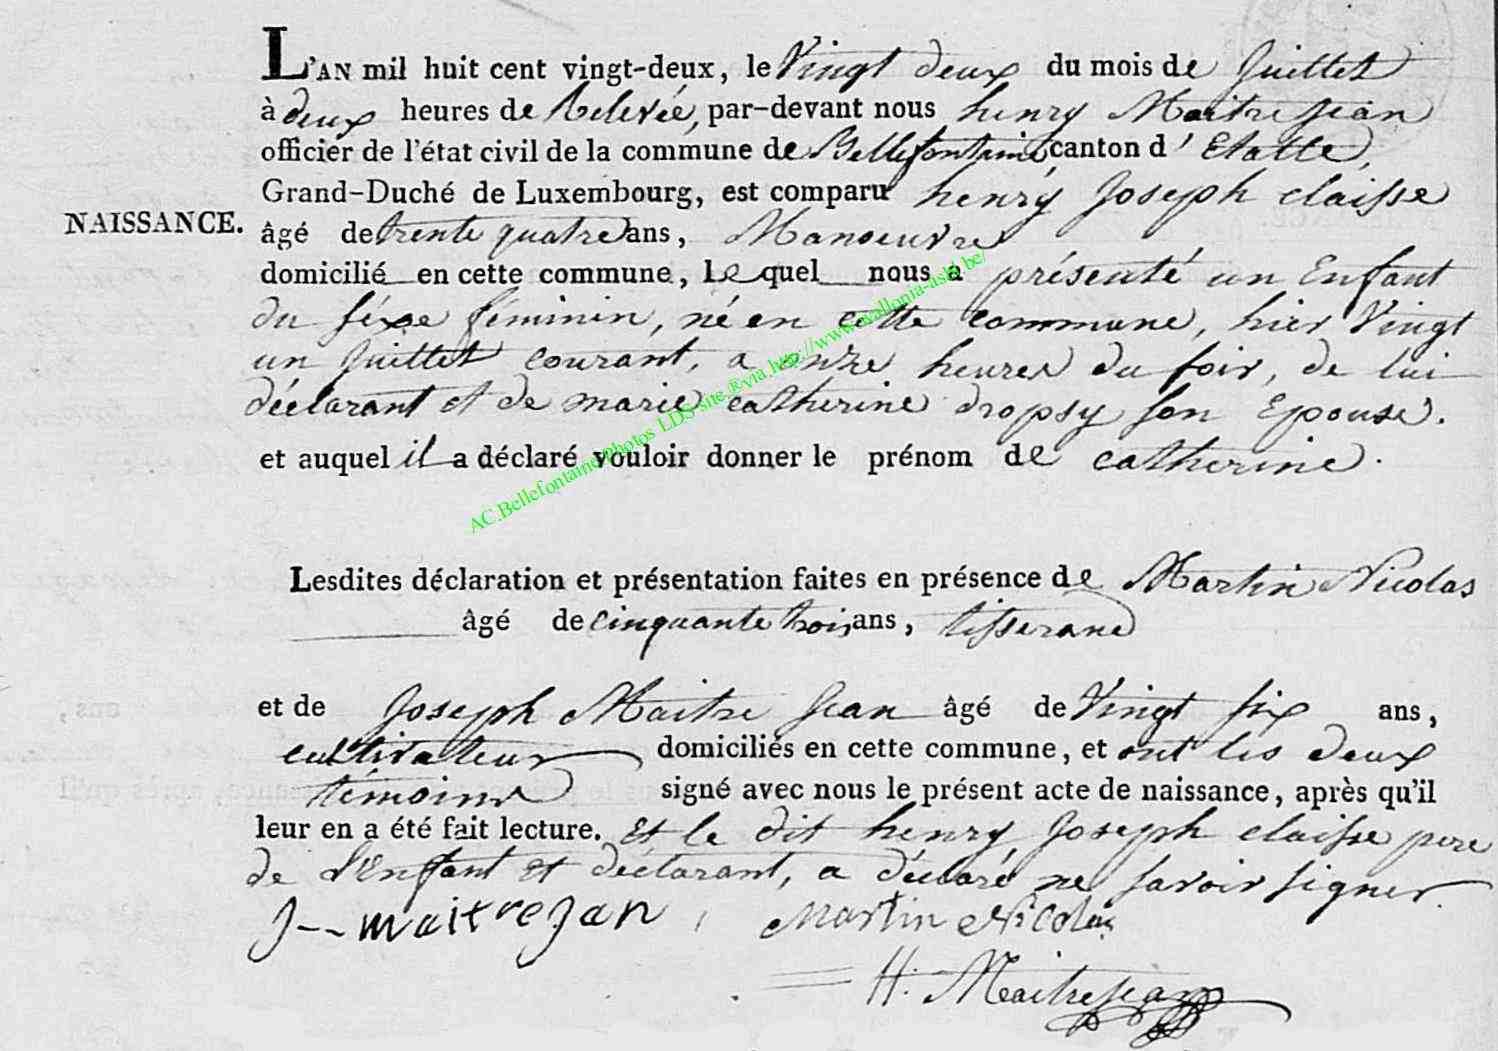 L'AN mil huit cent vingt-deux, le Vingt deux du mois de Juillet
à deux heures de Relevée, par-devant nous henry Maitrejean
officier de l'état civil de la commune de Bellefontaine canton d'Etalle,
Grand-Duché de Luxembourg, est comparu henry Joseph claisse
NAISSANCE.
âgé de trente quatre ans, Manoeuvre
domicilié en cette commune, le quel nous a présenté un Enfant
du séxe féminin, né en cette commune, hier Vingt
un Juillet courant, a onze heures du soir, de lui
déclarant et de marie catherine dropsy son Epouse.
et auquel il a déclaré vouloir donner le prénom de catherine.
AC.Bellefontaine photos LDS-sne ®via http://www.wallonia-asbl.be/
Lesdites déclaration et présentation faites en présence de Martin Nicolas
âgé de cinquante trois ans, tisserand
et de Joseph Maitre Jean âgé de Vingt six ans,
cultivateur domiciliés en cette commune, et ont les deux
témoins signé avec nous le présent acte de naissance, après qu'il
leur en a été fait lecture. Et le dit henry Joseph claisse pere
de l'Enfant et déclarant, a déclaré ne savoir signer.
J-- maitrejan, Martin Nicolas
H. Maitrejean